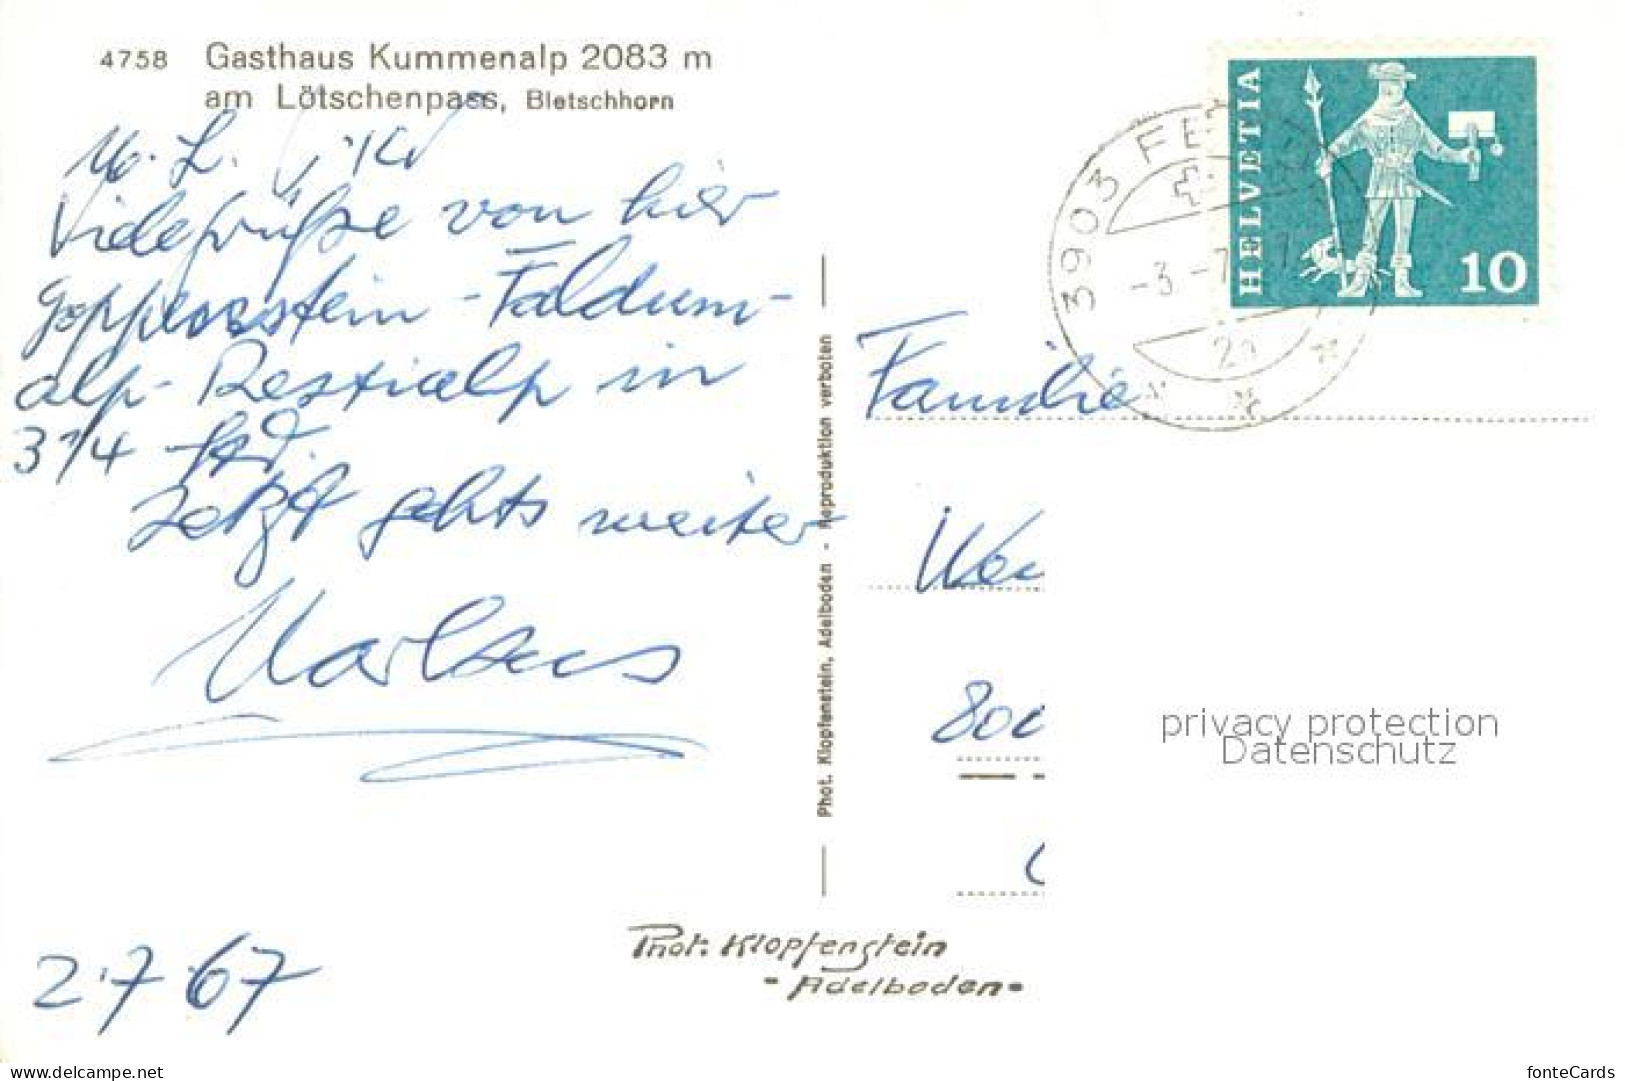 4758 Gasthaus Kummenalp 2083 m
am Lötschenpass, Bietschhorn
M. L.
Vielegrüße von hier
Goppenstein-Faldum-
alp-Restialp in
3 1/4 Std.
Jetzt gehts weiter
Markus
2.7.67
Phot. Klopfenstein, Adelboden - Reproduktion verboten
Phot. Klopfenstein
- Adelboden -
HELVETIA
10
3903
-3.-7
Familie
privacy protection
Datenschutz
www.delcampe.net
fonteCards